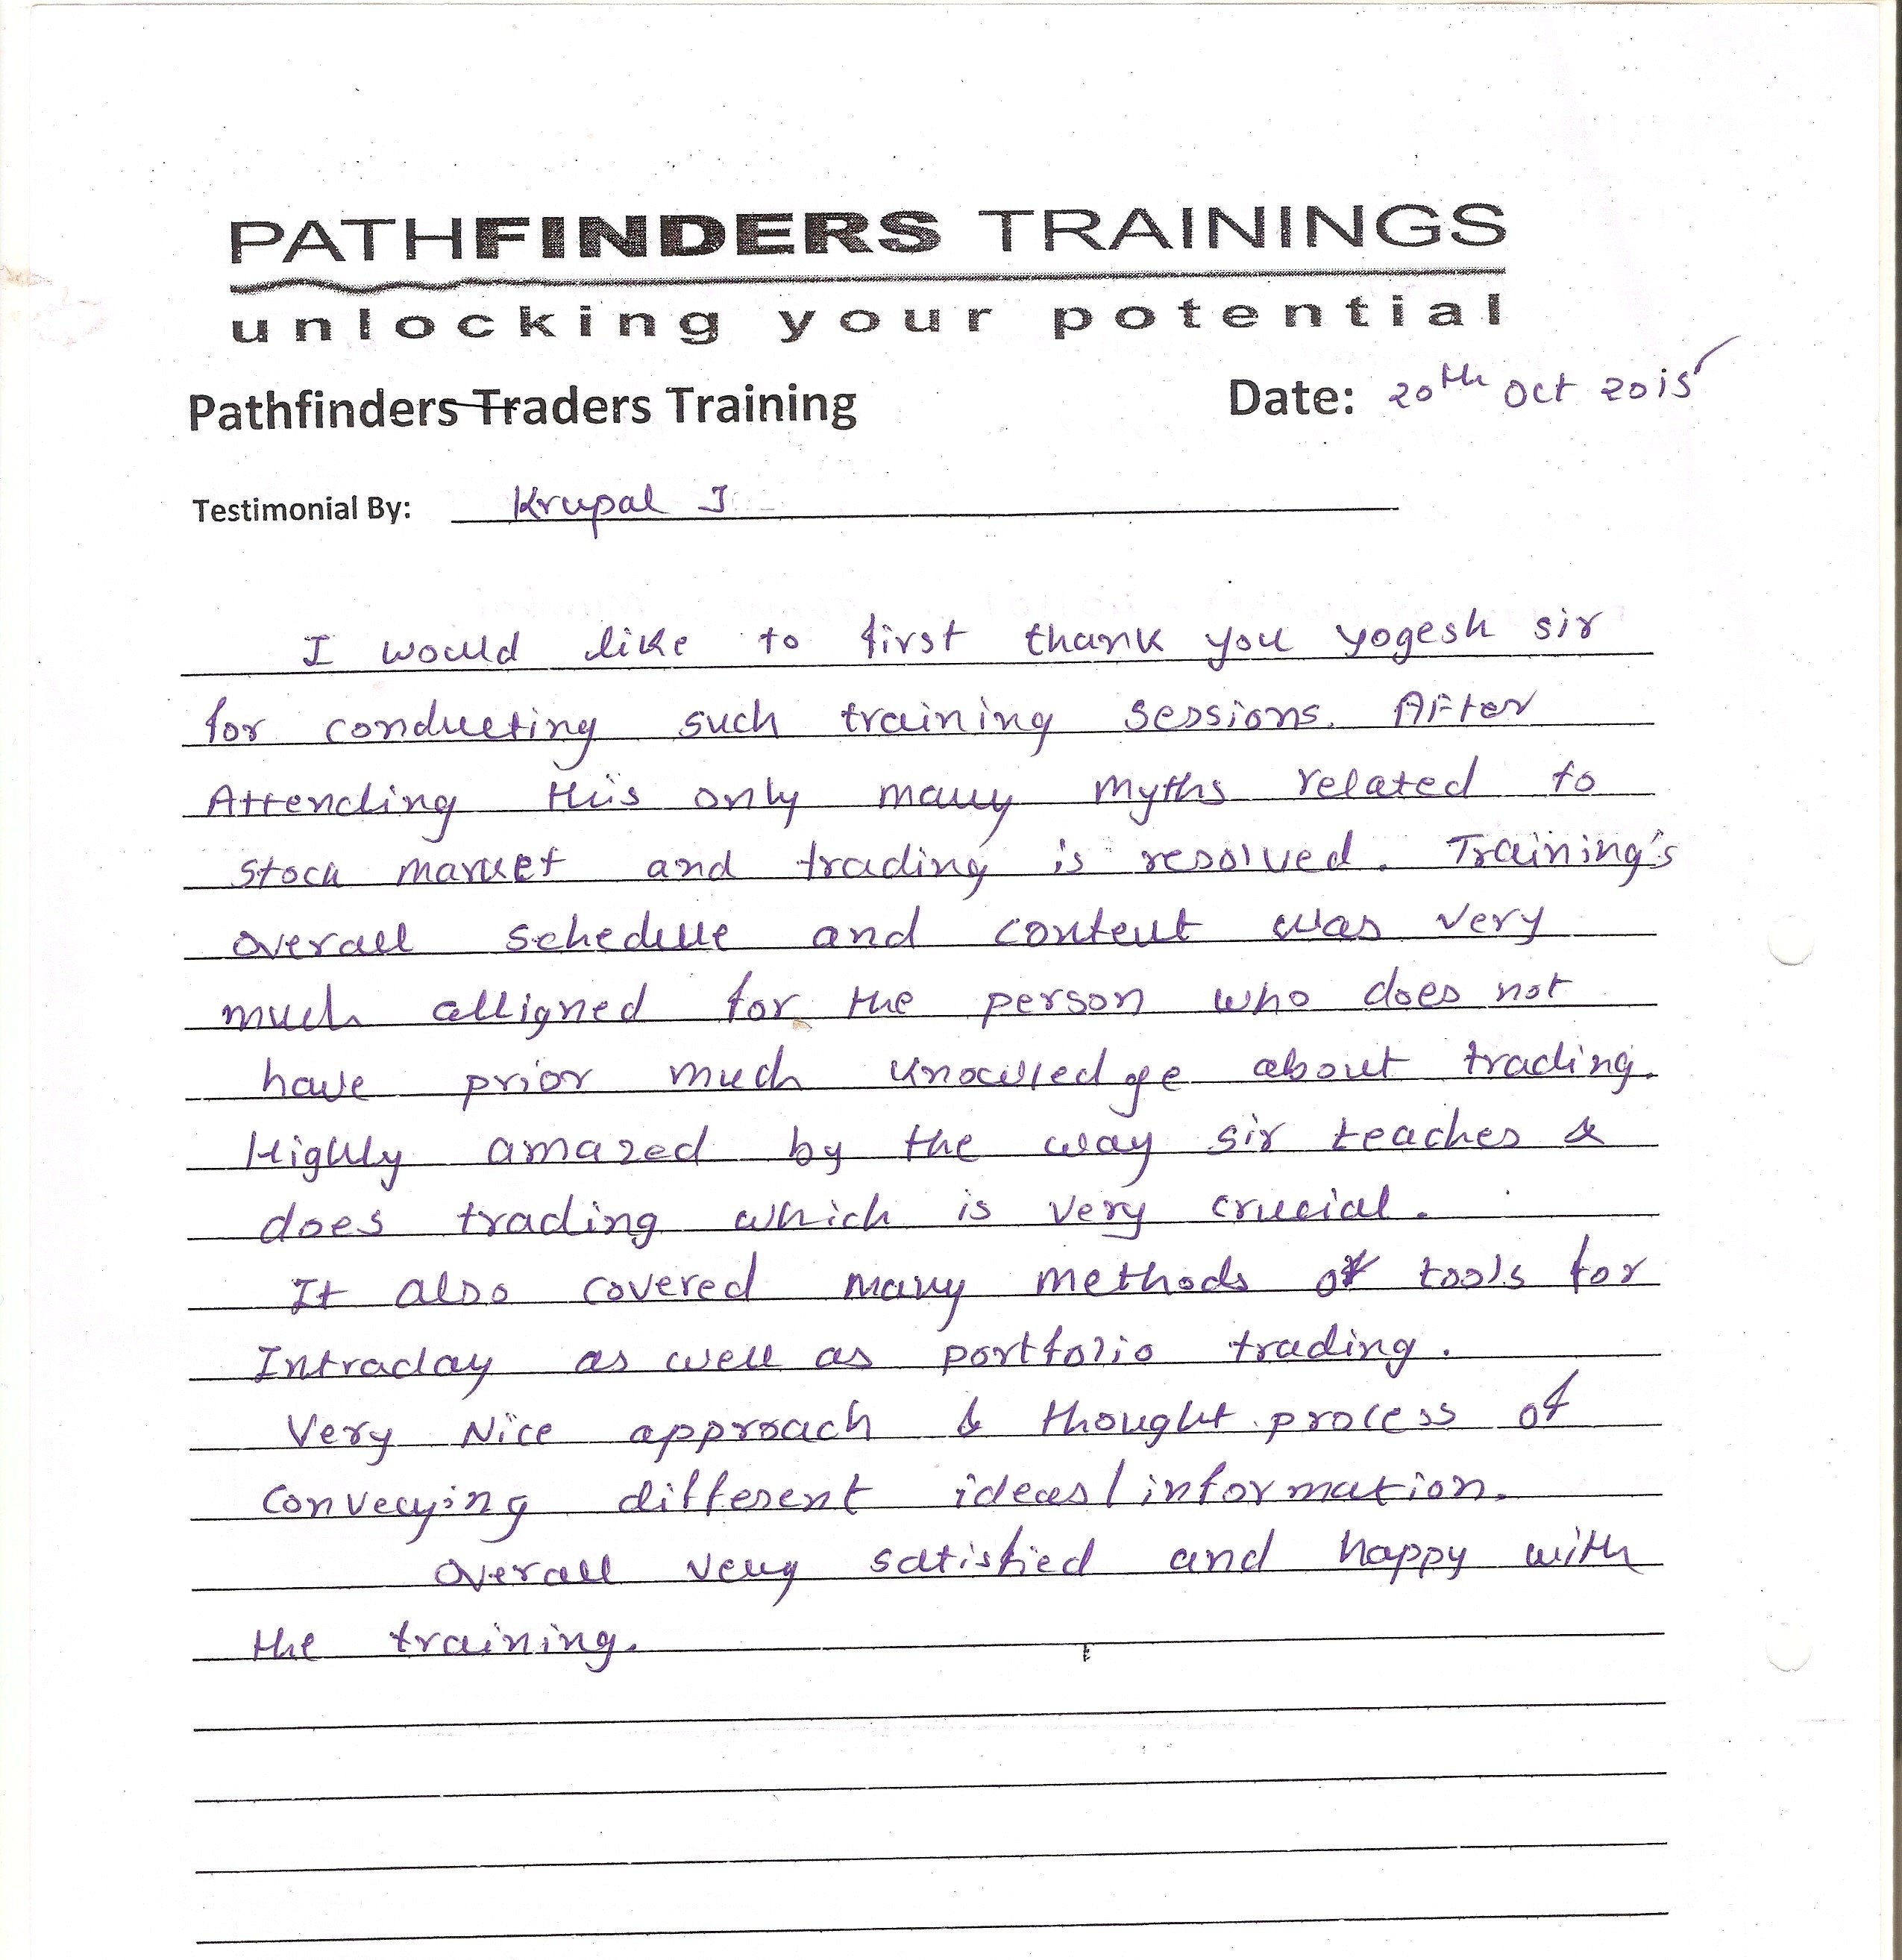 PATHFINDERS TRAININGS
unlocking your potential
Pathfinders Traders Training Date: 20th Oct 2015
Testimonial By: Krupal J
I would like to first thank you yogesh sir
for conducting such training sessions. After
Attending this only many myths related to
stock market and trading is resolved. Training's
overall schedule and content was very
much alligned for the person who does not
have prior much knowledge about trading.
Highly amazed by the way sir teaches &
does trading which is very crucial.
It also covered many methods of tools for
Intraday as well as portfolio trading.
Very Nice approach & thought process of
conveying different ideas/information.
Overall very satisfied and happy with
the training.